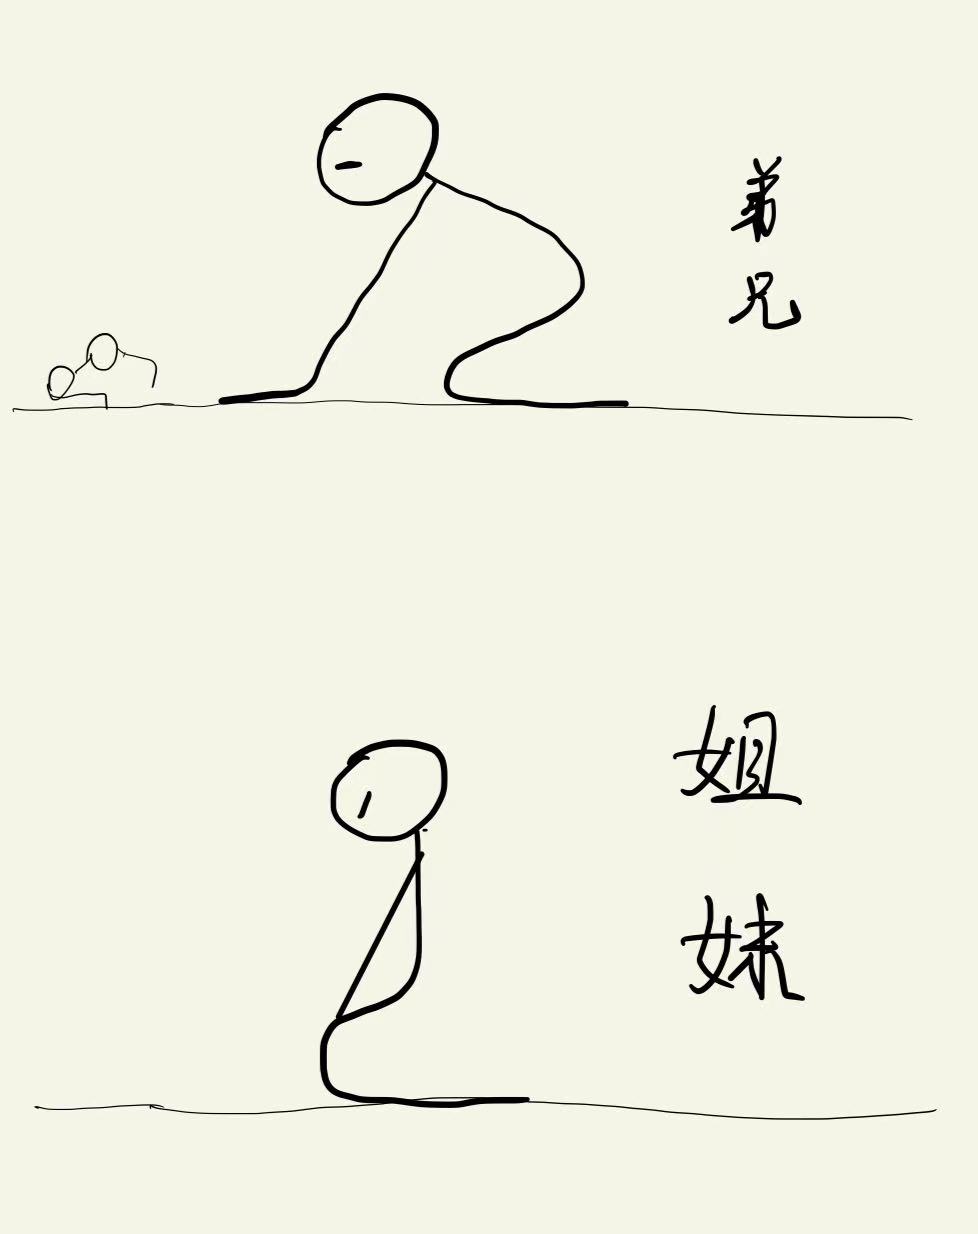 弟
兄
姐
妹